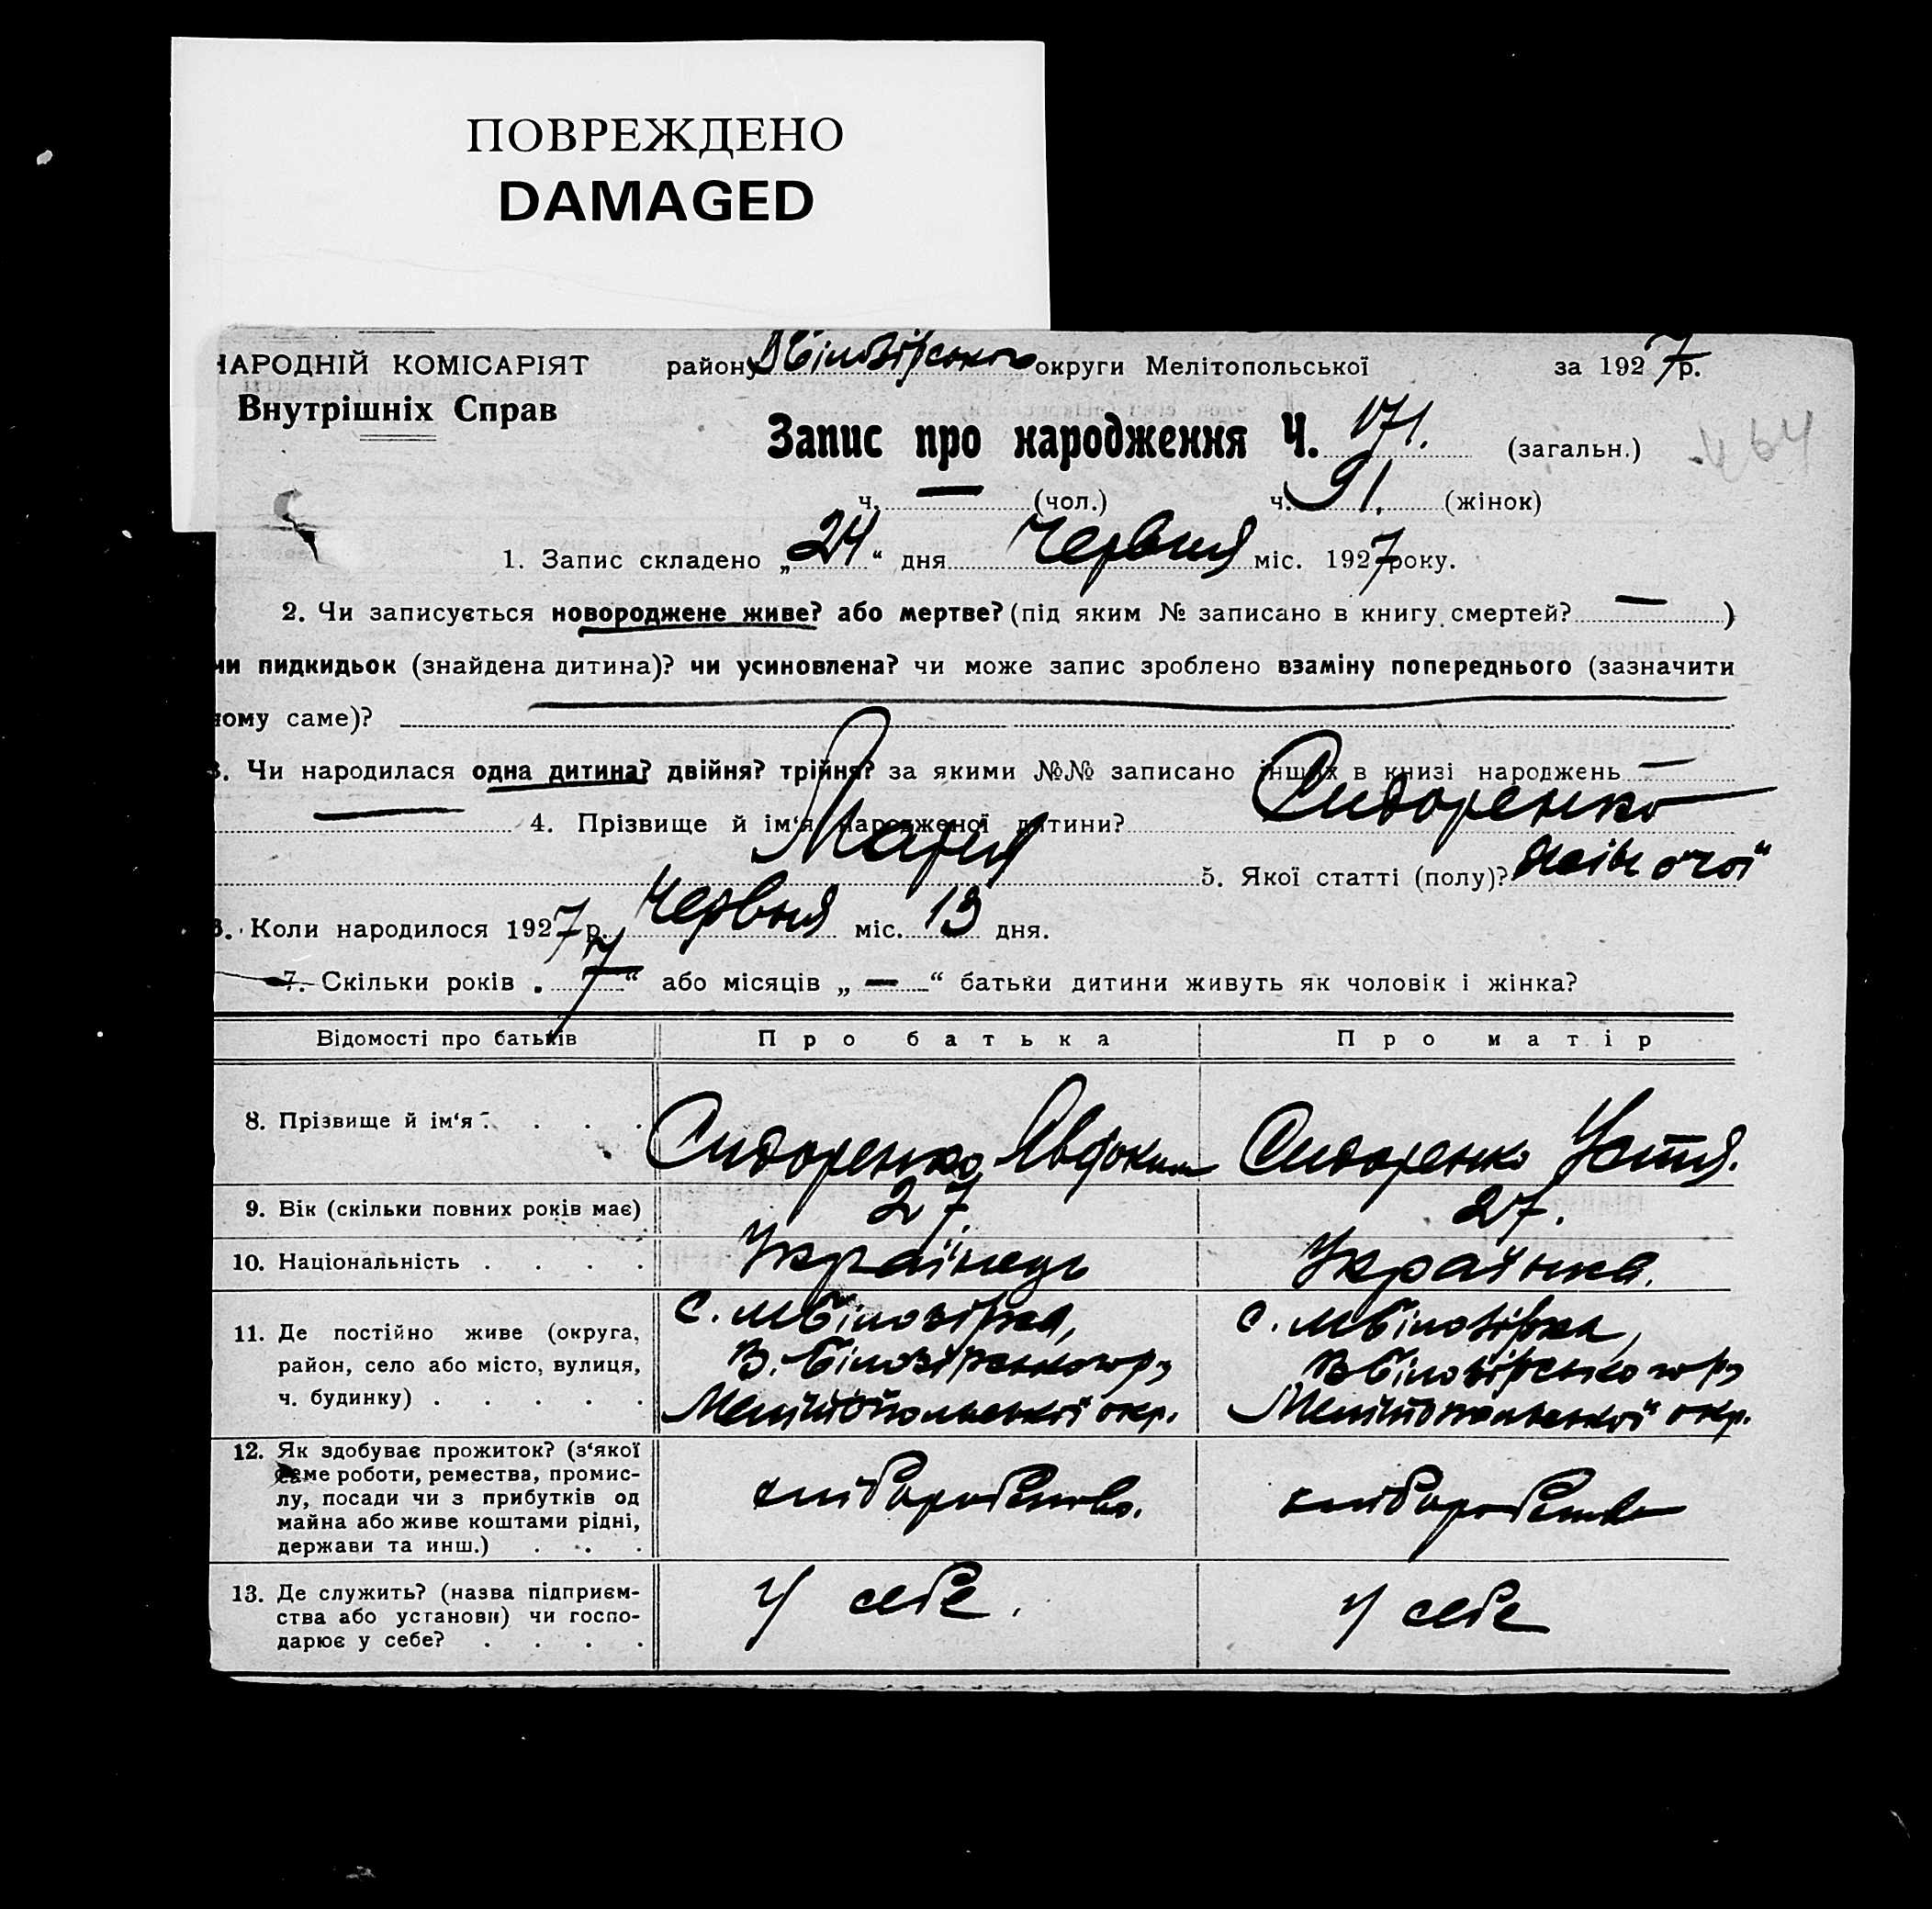 ПОВРЕЖДЕНО
DAMAGED
НАРОДНІЙ КОМІСАРІЯТ
Внутрішніх Справ
району ВБілозірського округи Мелітопольської за 1927р.
Запис про народження Ч. 171. (загальн.)
464
ч. — (чол.) ч. 91. (жінок)
1. Запис складено „24“ дня Червня міс. 1927року.
2. Чи записується новороджене живе? або мертве? (під яким № записано в книгу смертей? — )
чи пидкидьок (знайдена дитина)? чи усиновлена? чи може запис зроблено взаміну попереднього (зазначити
ному саме)?
3. Чи народилася одна дитина? двійня? трійня? за якими №№ записано інших в книзі народжень —
— 4. Прізвище й ім‘я народженої дитини? Сидоренко
Мария 5. Якої статті (полу)? жіночої
6. Коли народилося 1927р. Червня міс. 13 дня.
7. Скільки років „7“ або місяців „—“ батьки дитини живуть як чоловік і жінка?
Відомості про батьків Про батька Про матір
8. Прізвище й ім‘я Сидоренко Явдоким Сидоренко Устя.
9. Вік (скільки повних років має) 27. 27.
10. Національність Українець Українка.
11. Де постійно живе (округа, с. МБілозірка, с. МБілозірка,
район, село або місто, вулиця, В. Білозірського р, ВБілозірського р,
ч. будинку) Мелітопольської окр. Мелітопольської окр.
12. Як здобуває прожиток? (з‘якої
саме роботи, ремества, промис-
лу, посади чи з прибутків од хліборобство. хліборобство
майна або живе коштами рідні,
держави та инш.)
13. Де служить? (назва підприєм-
ства або установи) чи госпо- У себе. У себе
дарює у себе?